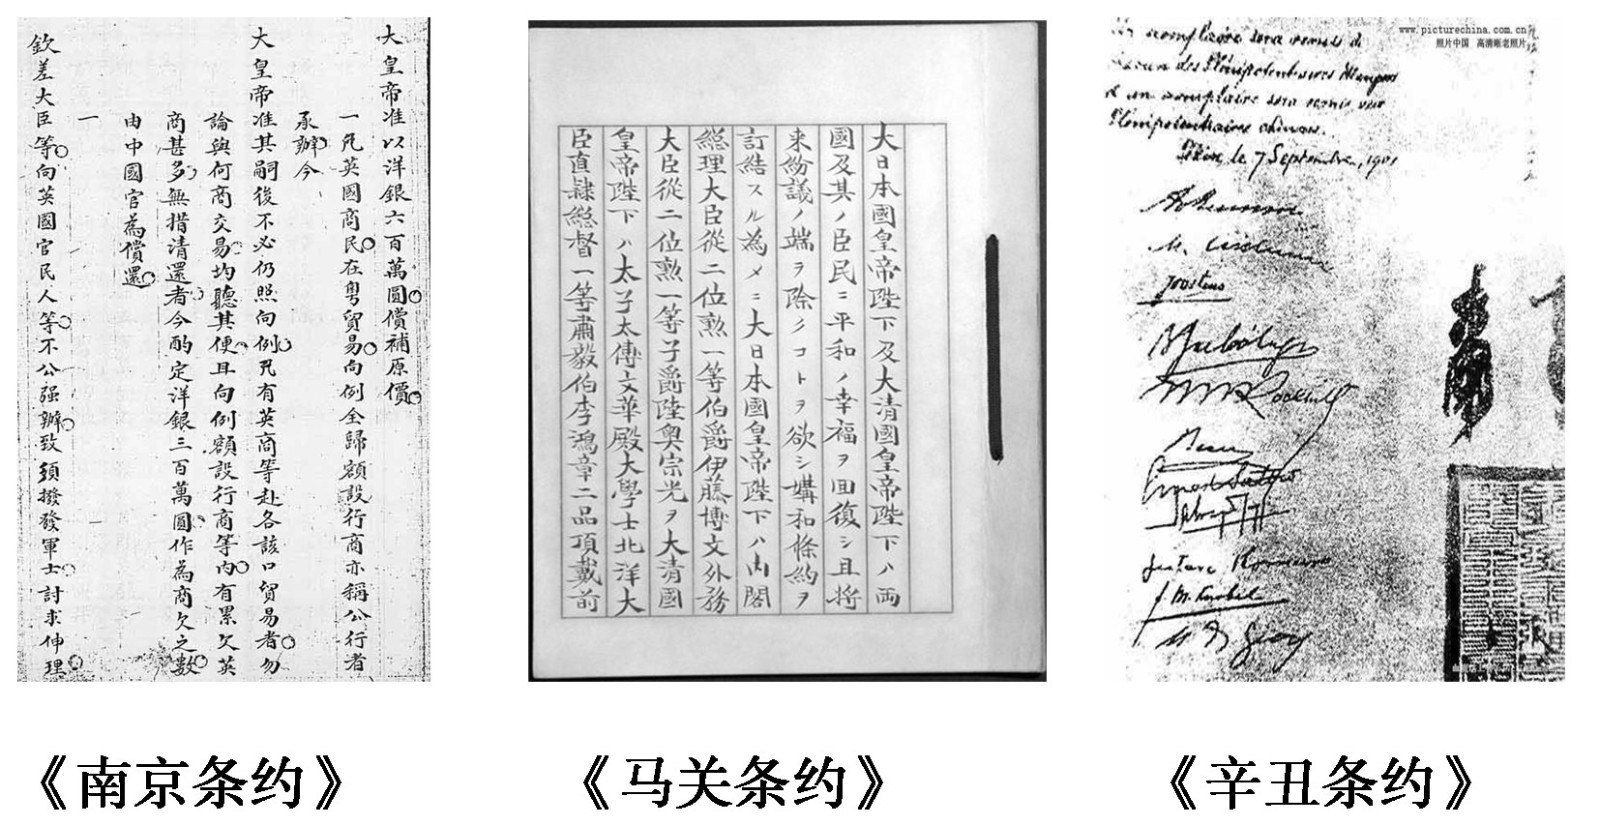 大皇帝准以洋銀六百萬圓償補原價
一凡英國商民在粵貿易向例全歸額設行商亦稱公行者
承辦今
大皇帝准其嗣後不必仍照向例凡有英商等赴各該口貿易者勿
論與何商交易均聽其便且向例額設行商等內有累欠英
商甚多無措清還者今酌定洋銀三百萬圓作為商欠之數
由中國官為償還
一
欽差大臣等向英國官民人等不公强辦致須撥發軍士討求伸理
大日本國皇帝陛下及大清國皇帝陛下ハ両
國及其ノ臣民ニ平和ノ幸福ヲ囘復シ且將
来紛議ノ端ヲ除クコトヲ欲シ媾和條約ヲ
訂結スル為メニ大日本國皇帝陛下ハ内閣
総理大臣從二位勲一等伯爵伊藤博文外務
大臣從二位勲一等子爵陸奥宗光ヲ大清國
皇帝陛下ハ太子太傅文華殿大學士北洋大
臣直隷総督一等肅毅伯李鴻章二品頂戴前
www.picturechina.com.cn
照片中国 高清晰老照片
exemplaire sera remis à
chacun des Plénipotentiaires étrangers
et un exemplaire sera remis aux
Plénipotentiaires chinois.
Pékin, le 7 Septembre, 1901
Joostens
Ernest Satow
《南京条约》
《马关条约》
《辛丑条约》